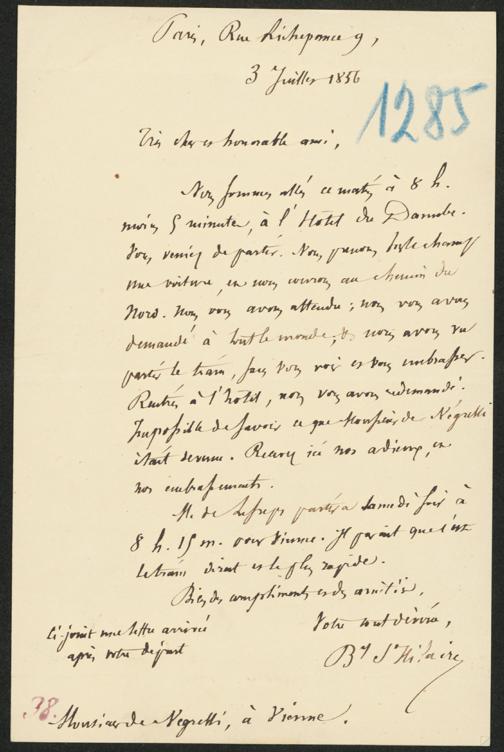 Paris, Rue Richepance 9,
3 Juillet 1856
1285
Très cher et honorable ami,
Nous sommes allés ce matin à 8 h.
moins 5 minutes, à l'Hôtel du Danube.
Vous veniez de partir. Nous prenons sur le champ
une voiture, et nous courons au chemin du
Nord. Nous vous avons attendu ; nous vous avons
demandé à tout le monde ; et nous avons vu
partir le train, sans vous voir et vous embrasser.
Rentrés à l'hôtel, nous vous avons redemandé.
Impossible de savoir ce que Monsieur de Négrelli
était devenu. Recevez ici nos adieux, et
nos embrassements.
M. de Lesseps partira Samedi soir à
8 h. 15 m. pour Vienne. Il paraît que c'est
le train direct et le plus rapide.
Bien des compliments et des amitiés.
Votre tout dévoué,
Bt St Hilaire
Ci-joint une lettre arrivée
après votre départ
38.
Monsieur de Negrelli, à Vienne.